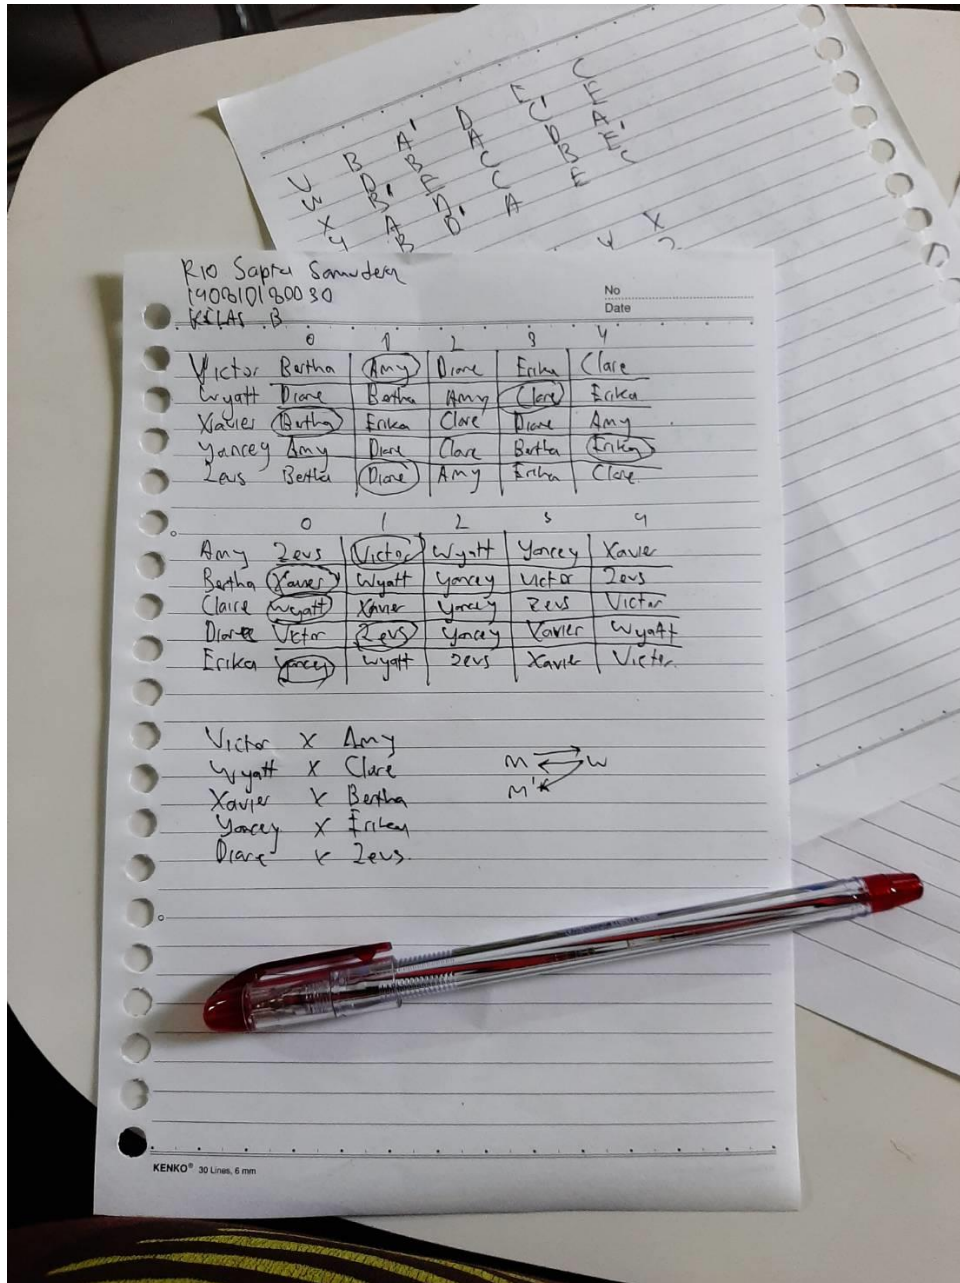 V B A' D E' C
W D B A C E
X B' E C D A
Y A D C B E'
B D' A E C
Y X
RIO Sapta Samudera
140810180030
KELAS B
No
Date
0 1 2 3 4
Victor Bertha Amy Diane Erika Clare
Wyatt Diane Bertha Amy Clare Erika
Xavier Bertha Erika Clare Diane Amy
Yancey Amy Diane Clare Bertha Erika
Zeus Bertha Diane Amy Erika Clare
0 1 2 3 4
Amy Zeus Victor Wyatt Yancey Xavier
Bertha Xavier Wyatt Yancey Victor Zeus
Claire Wyatt Xavier Yancey Zeus Victor
Diane Victor Zeus Yancey Xavier Wyatt
Erika Yancey Wyatt Zeus Xavier Victor
Victor X Amy
Wyatt X Clare
Xavier X Bertha
Yancey X Erika
Diane X Zeus.
M W
M'
KENKO® 30 Lines, 6 mm